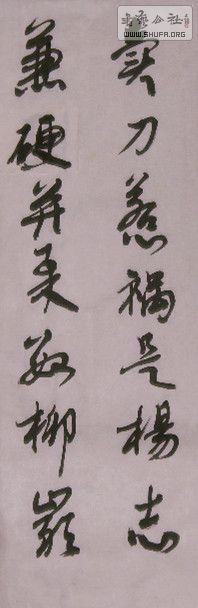 書法公社
WWW.SHUFA.ORG
寶刀惹禍是楊志
兼硬并柔數柳巖